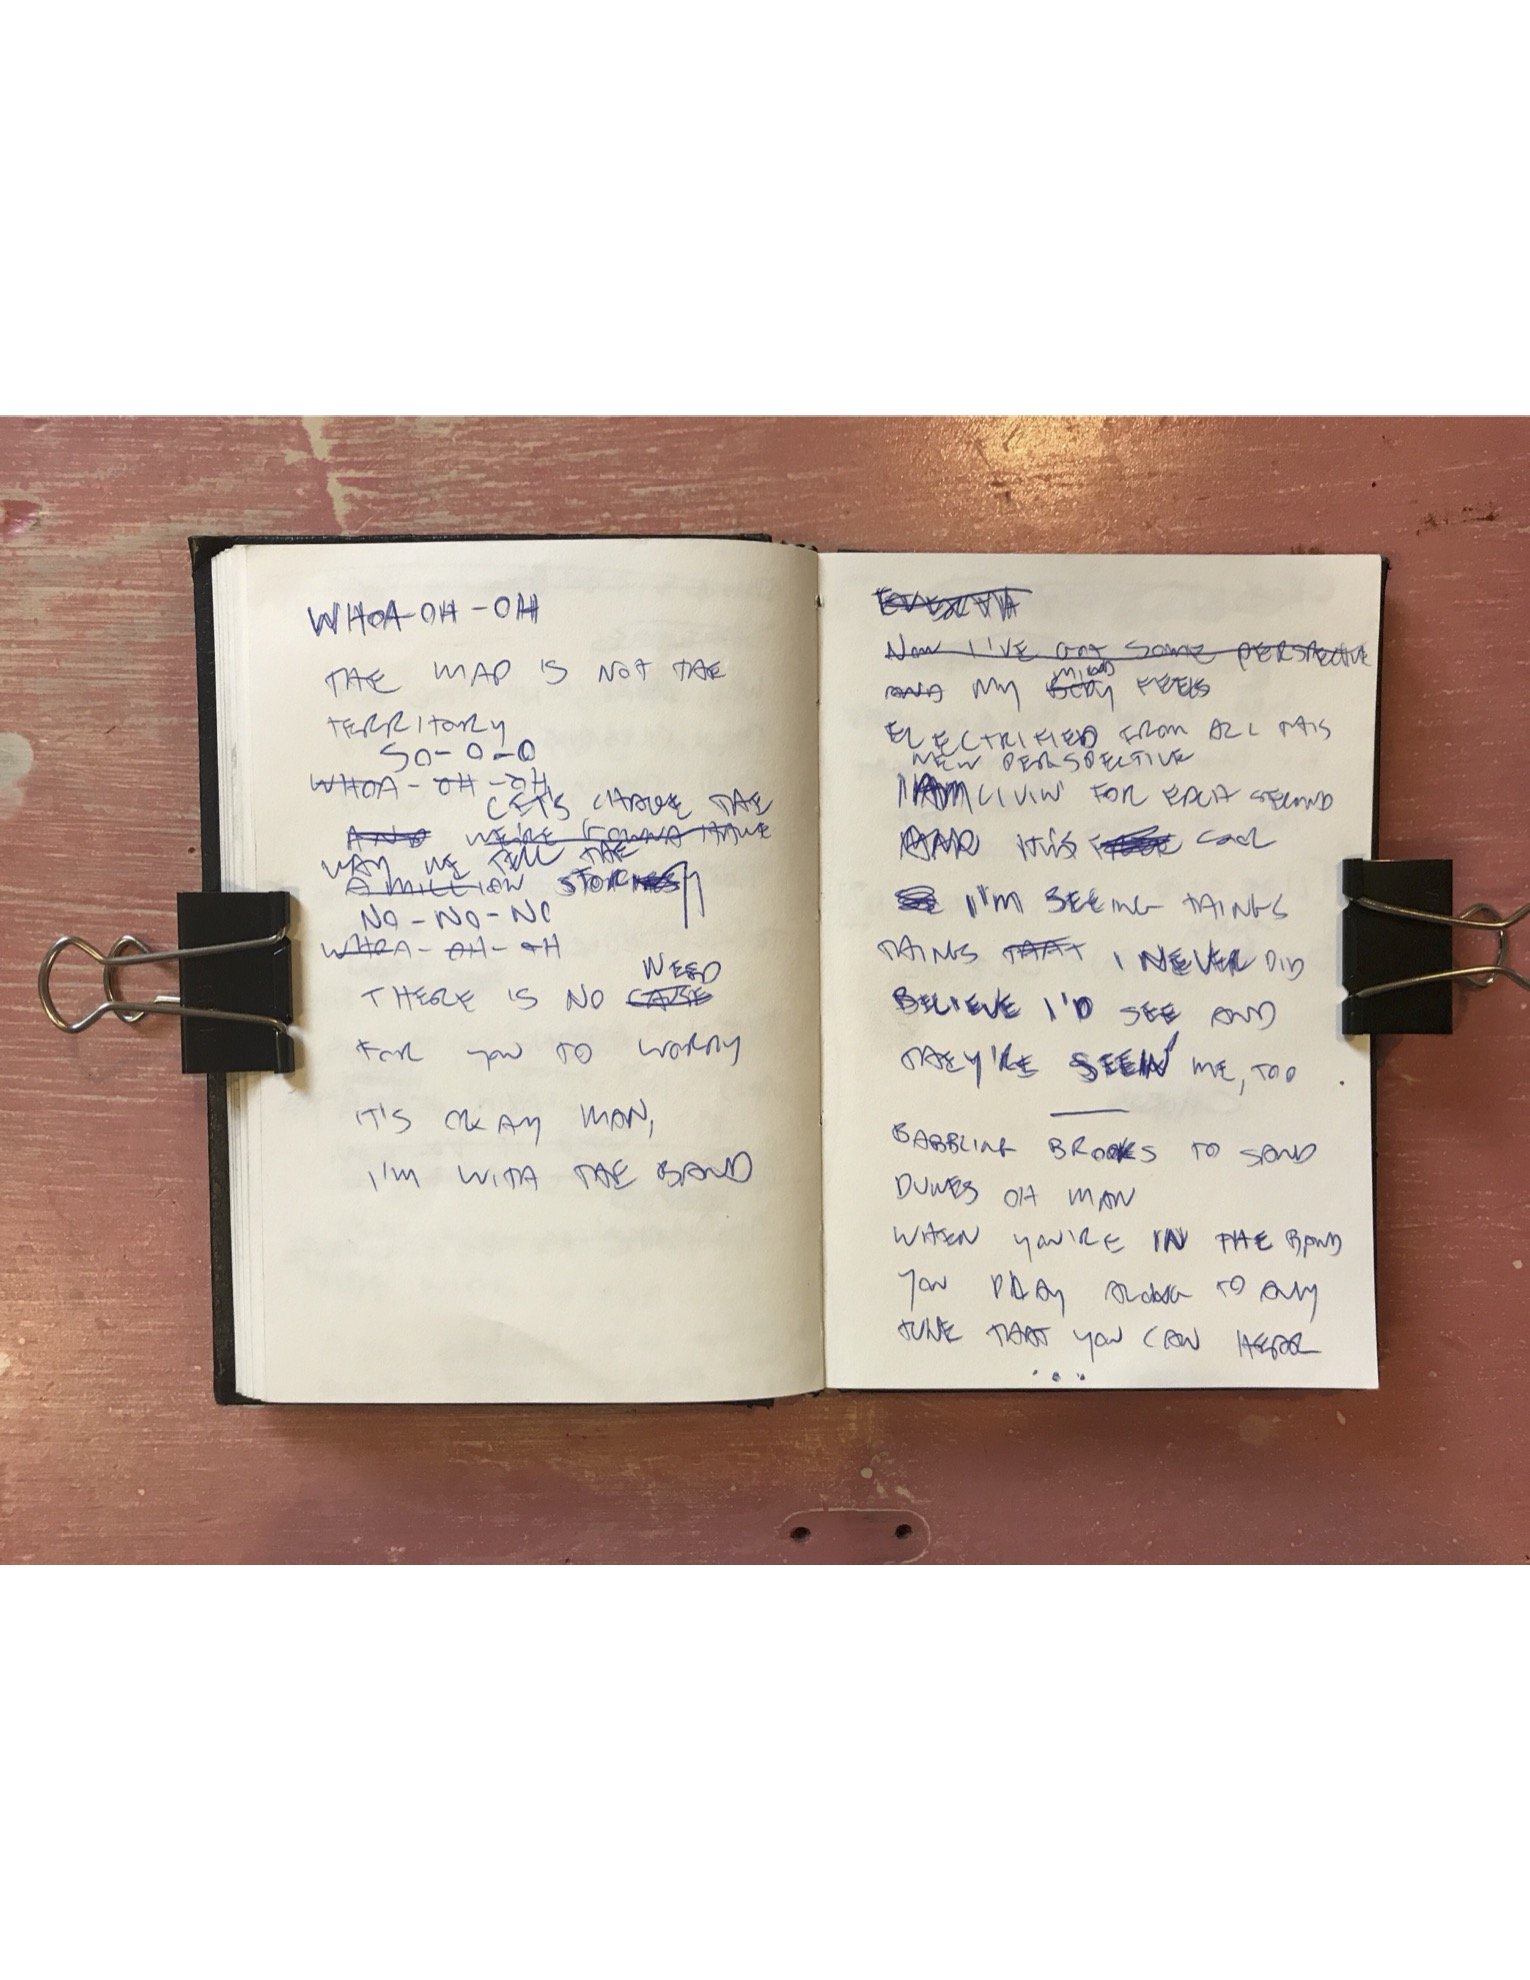 WHOA-OH-OH
THE MAP IS NOT THE
TERRITORY
SO-O-O
WHOA-OH-OH
LET'S CHANGE THE
AND WE'RE GONNA HAVE
WAY WE TELL THE
A MILLION STORY
NO-NO-NO
WHOA-OH-OH
NEED
THERE IS NO CAUSE
FOR YOU TO WORRY
IT'S OKAY MAN,
I'M WITH THE BAND
NOW I'VE GOT SOME PERSPECTIVE
MIND
AND MY BODY FEELS
ELECTRIFIED FROM ALL THIS
NEW PERSPECTIVE
I AM LIVIN' FOR EACH SECOND
AND IT IS COOL
I'M SEEING THINGS
THINGS THAT I NEVER DID
BELIEVE I'D SEE AND
THEY'RE SEEIN' ME, TOO
BABBLING BROOKS TO SAND
DUNES OH MAN
WHEN YOU'RE IN THE BAND
YOU PLAY ALONG TO ANY
TUNE THAT YOU CAN HEAR
...